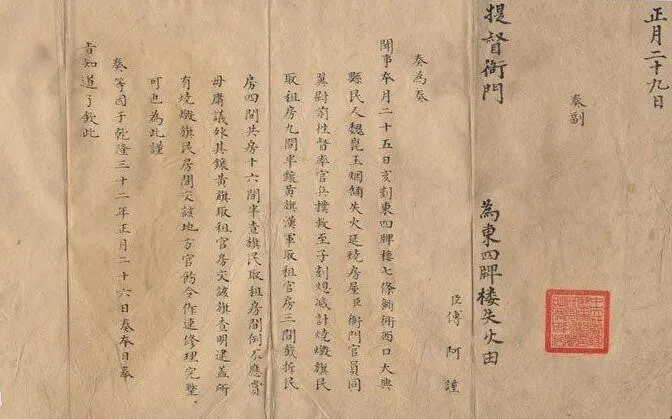 正月二十九日
奏副
提督衙門 為東四牌楼失火由
臣傅 阿 謹
奏為奏
聞事本月二十五日亥刻東四牌樓七條衚衕西口大興
縣民人魏崑玉烟舖失火延燒房屋臣衙門官員同
翼尉前徃督率官兵撲救至子刻熄滅計燒燬旗民
取租房九間半鑲黄旗漢軍取租官房三間截拆民
房四間共房十六間半查旗民取租房間例不應賞
毋庸議外其鑲黄旗取租官房交該旗查明建盖所
有燒燬旗民房間交該地方官飭令作速修理完整
可也為此謹
奏等因于乾隆三十二年正月二十六日奏本日奉
旨知道了欽此